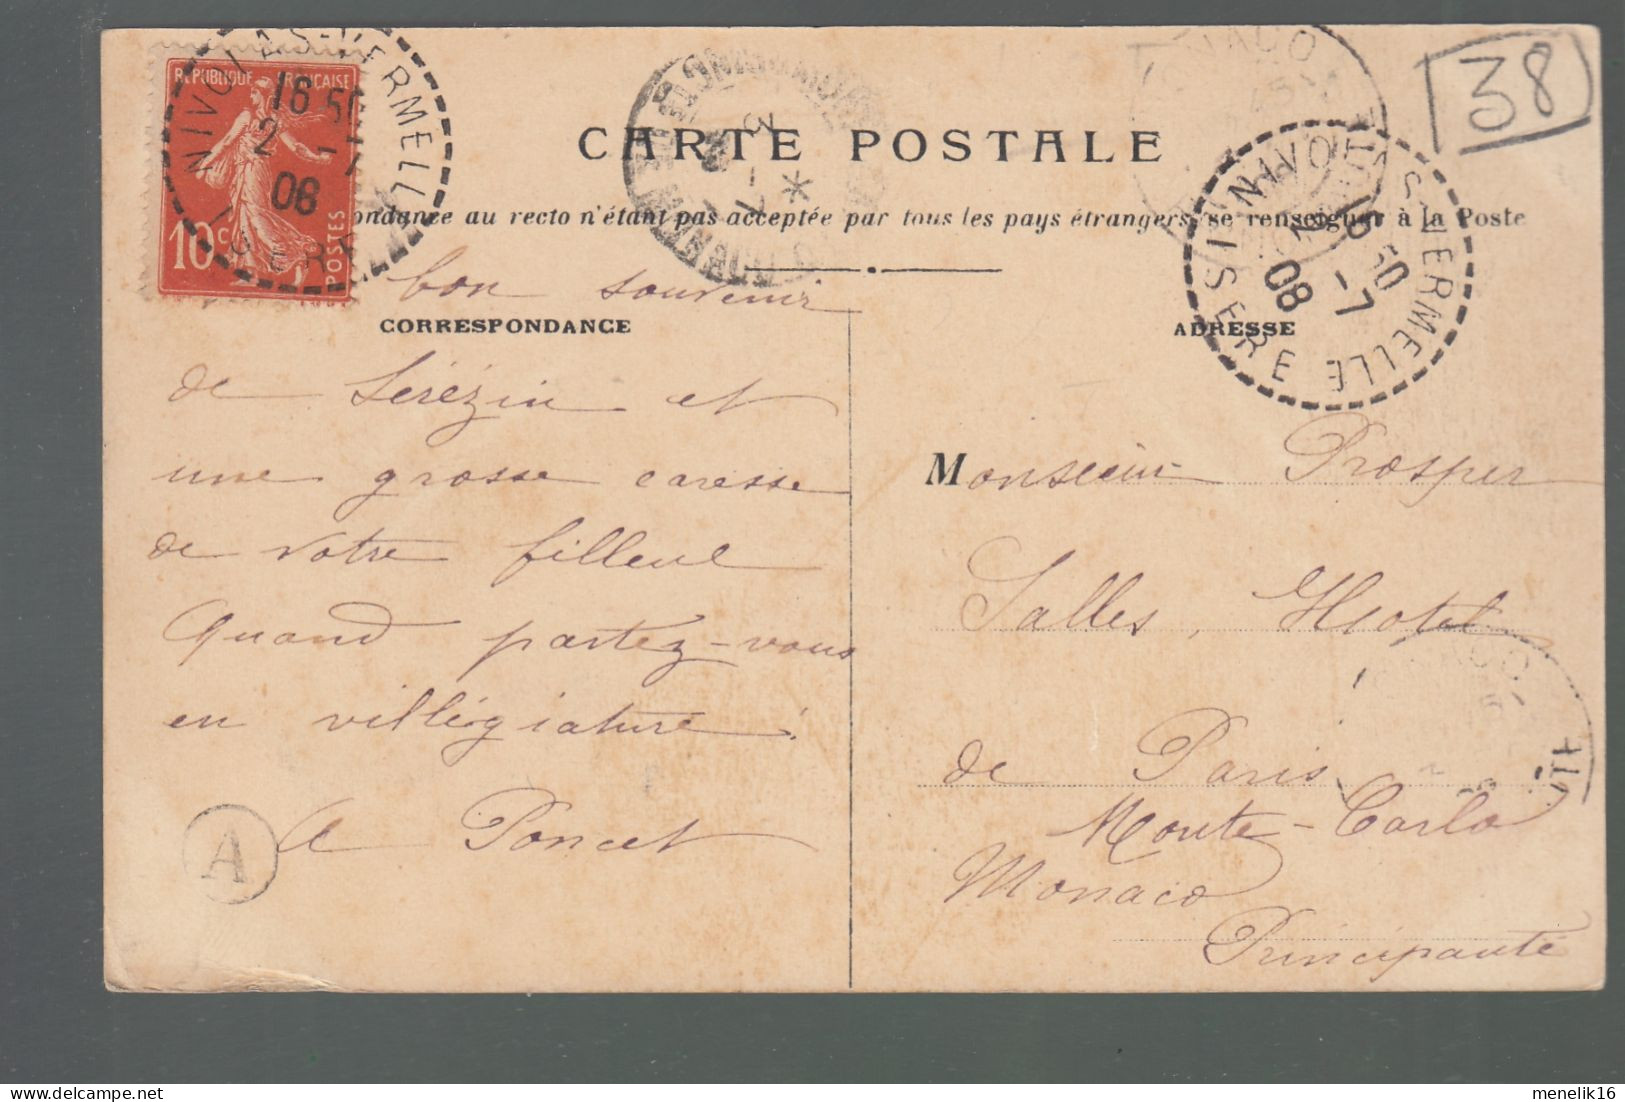 38
REPUBLIQUE FRANÇAISE
10c POSTES
NIVOLAS-VERMELLE
16 50
2 -7
08
ISERE
CARTE POSTALE
ondance au recto n'étant pas acceptée par tous les pays étrangers, se renseigner à la Poste
CORRESPONDANCE
ADRESSE
NIVOLAS-VERMELLE
16 50
2 -7
08
ISERE
bon souvenir
de Sérézin et
une grosse caresse
de votre filleul
Quand partez-vous
en villégiature?
A Poncet
A
Monsieur Prosper
Salles, Hotel
de Paris
Monte-Carlo
Monaco
Principauté
menelik16